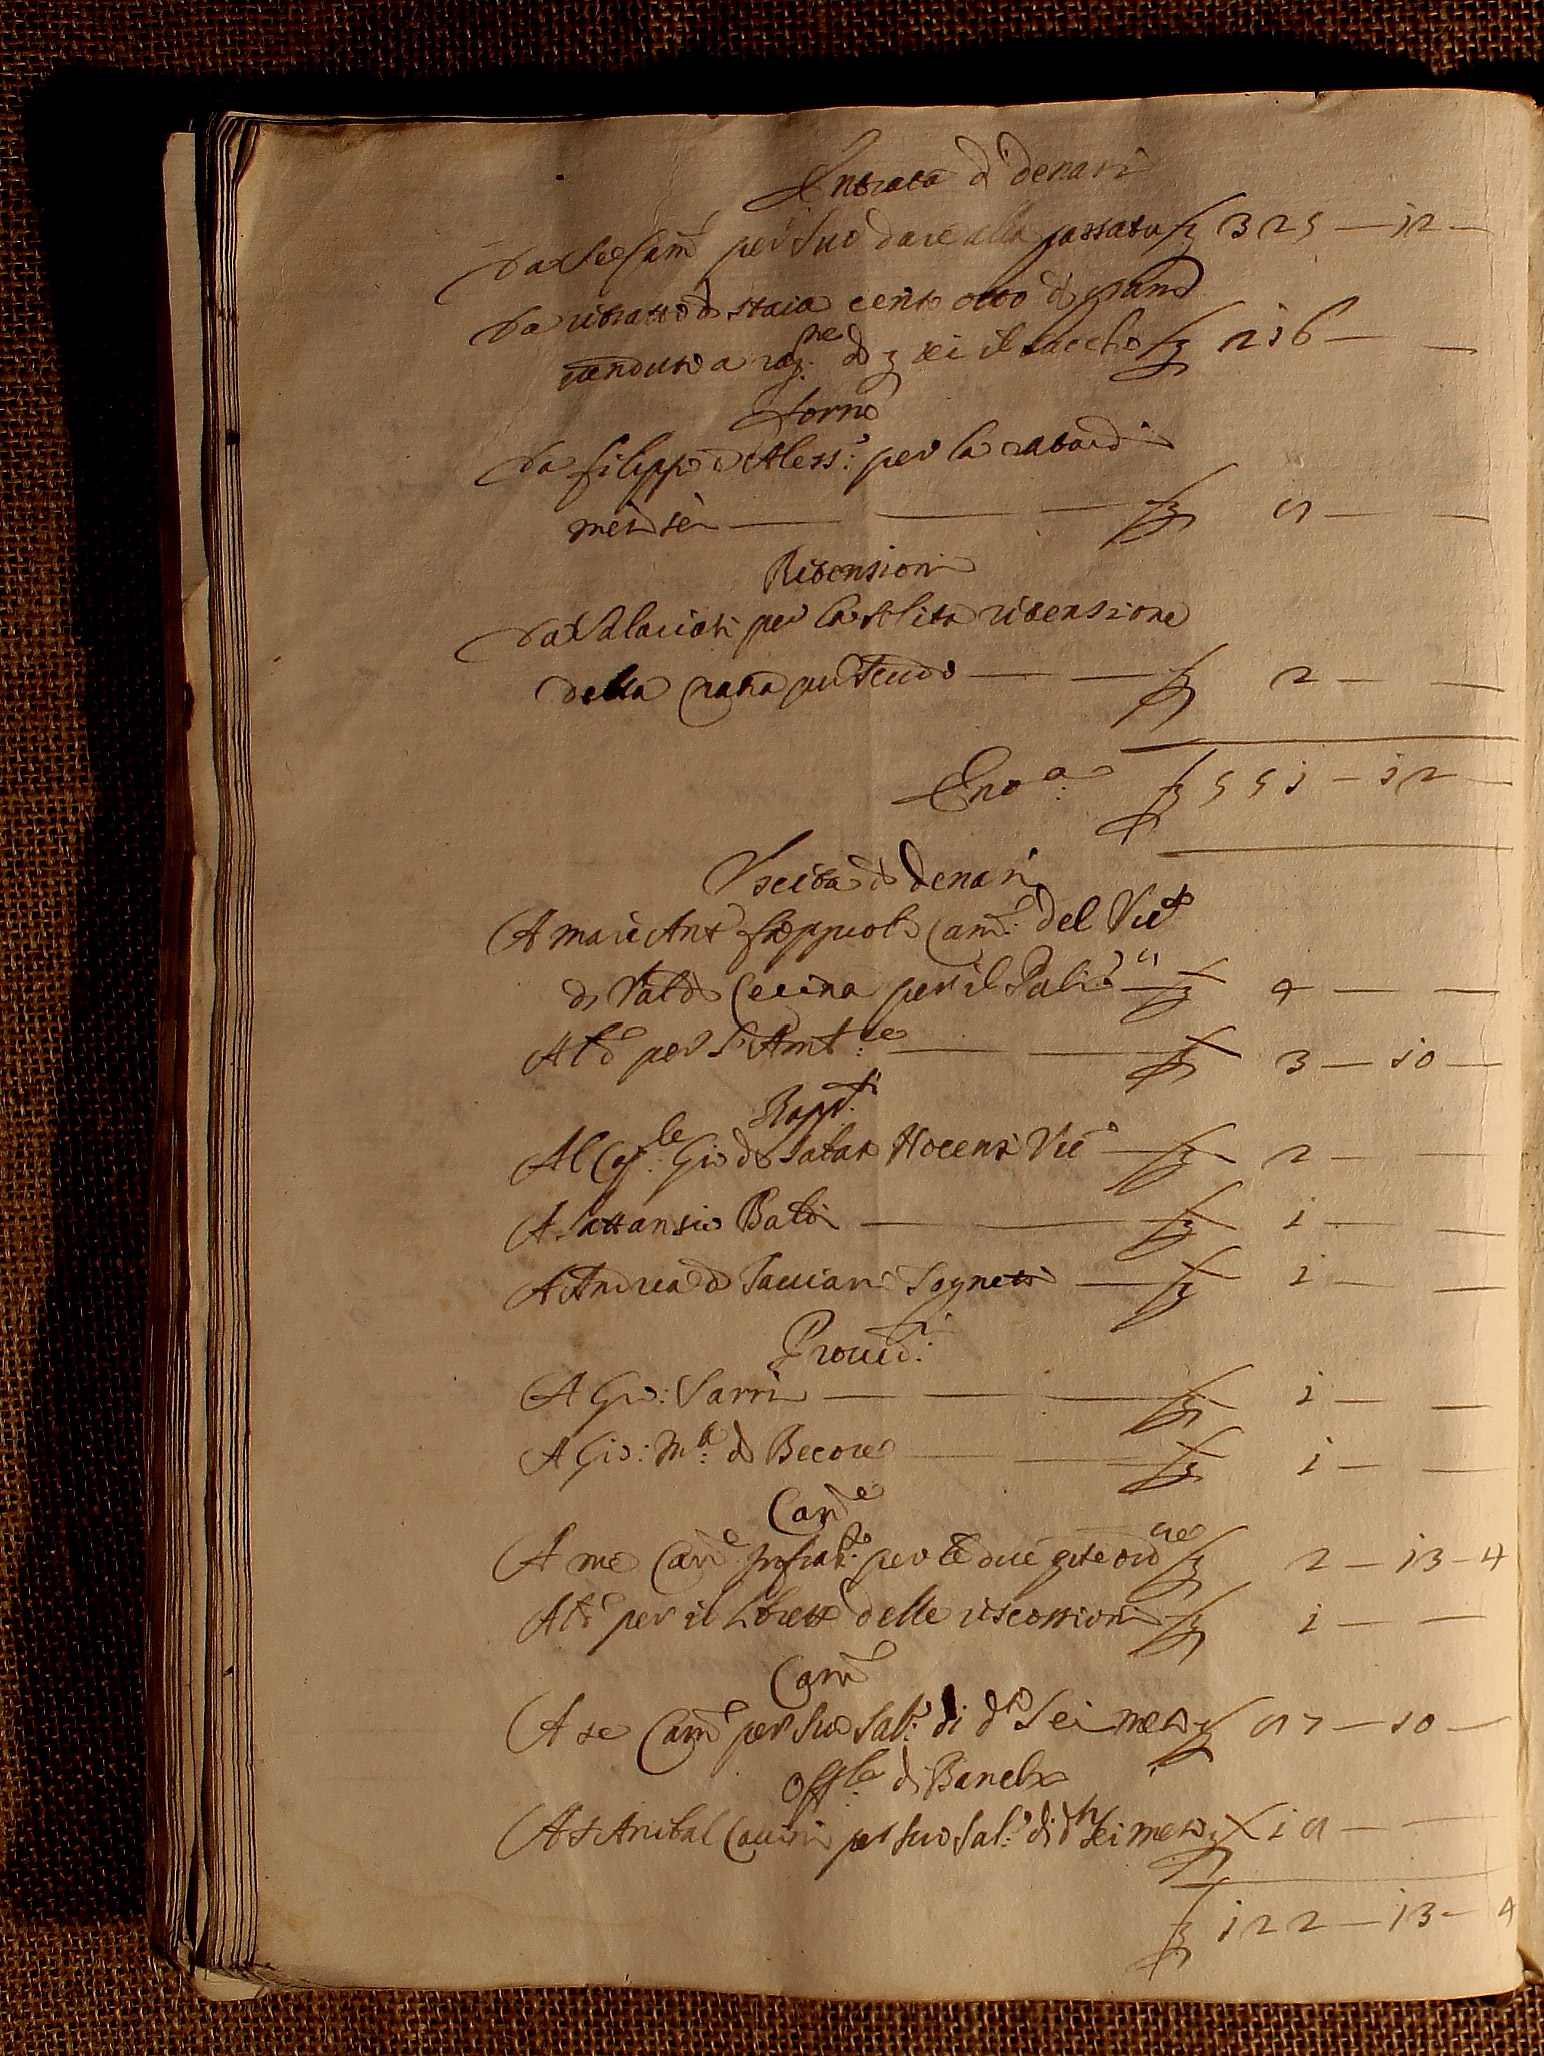 Entrata di denari
Da se Cam.º per suo dare alla passata £ 325 — 12 —
Da ritratto di staia cento otto di grano
venduto a rag.ne di £ sei il sacco £ 216 — —
forno
Da filippo d'Aless.º per la rata di
mesi sei — — — £ 8 — —
Ritensioni
Da Salariati per la solita ritensione
della rata per scudo — — £ 2 — —
Ent.a £ 551 — 12 —
Uscita di denari
A marc'Ant.º Cam.º del Vic.to
di Val di Cecina per il Palio — £ 4 — —
A d.º per — — £ 3 — 10 —
Rapp.ti
Al Gio di Vic.º — £ 2 — —
A Lattansio Baldi — — £ 1 — —
A Andrea di — £ 1 — —
Proved.ri
A Gio: Sarri — — — £ 1 — —
A Gio: M.a di Becore — — £ 1 — —
Cam.e
A me Can.e per le due gite ord.rie £ 2 — 13 — 4
A d.º per il libretto delle riscossioni £ 1 — —
Cam.º
A se Cam.º per suo sal.º di d.i sei mesi £ 87 — 10 —
Off.le di Banch.a
A per suo sal.º di d.i sei mesi £ 18 — —
£ 122 — 13 — 4